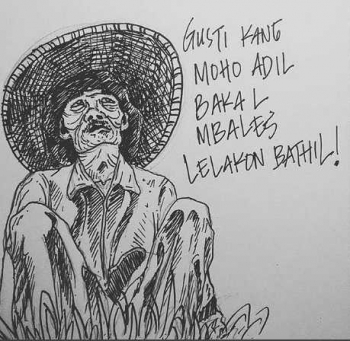 GUSTI KANG
MOHO ADIL
BAKAL
MBALES
LELAKON BATHIL!